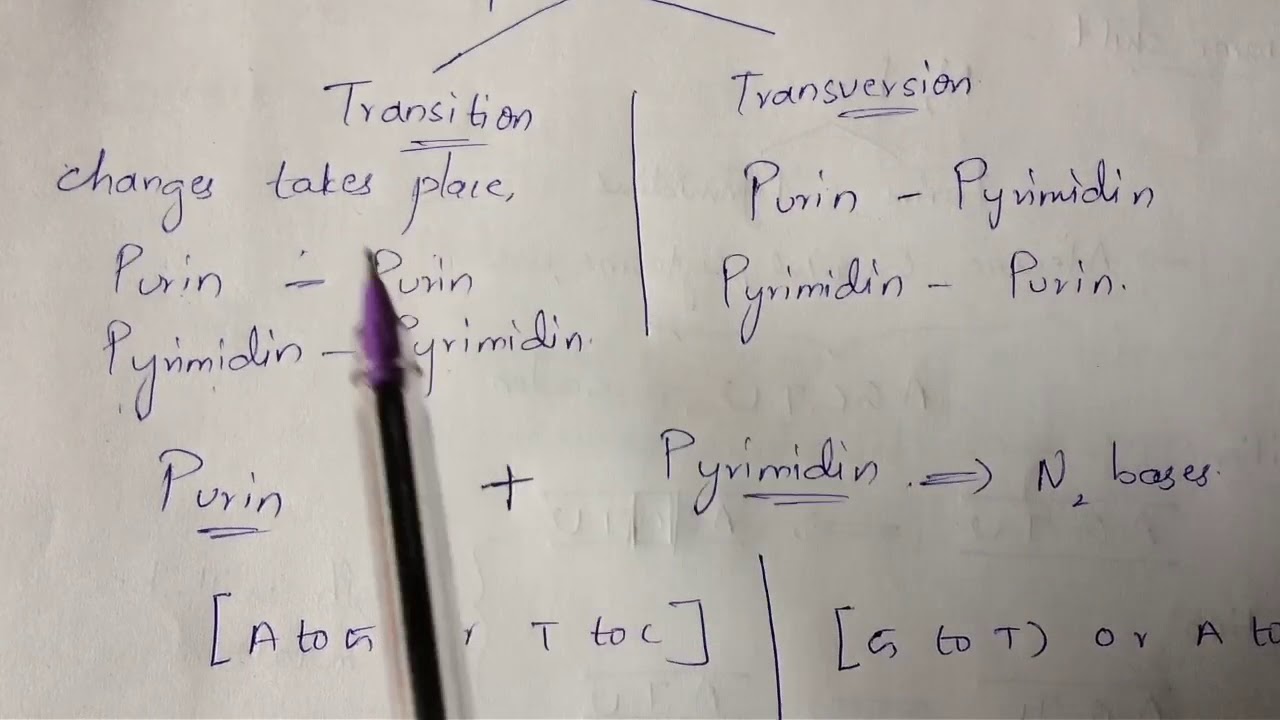 Transition
Transversion
changes takes place,
Purin - Purin
Pyrimidin - Pyrimidin.
Purin - Pyrimidin
Pyrimidin - Purin.
Purin + Pyrimidin => N2 bases.
[A to G T to C]
[G to T) or A to